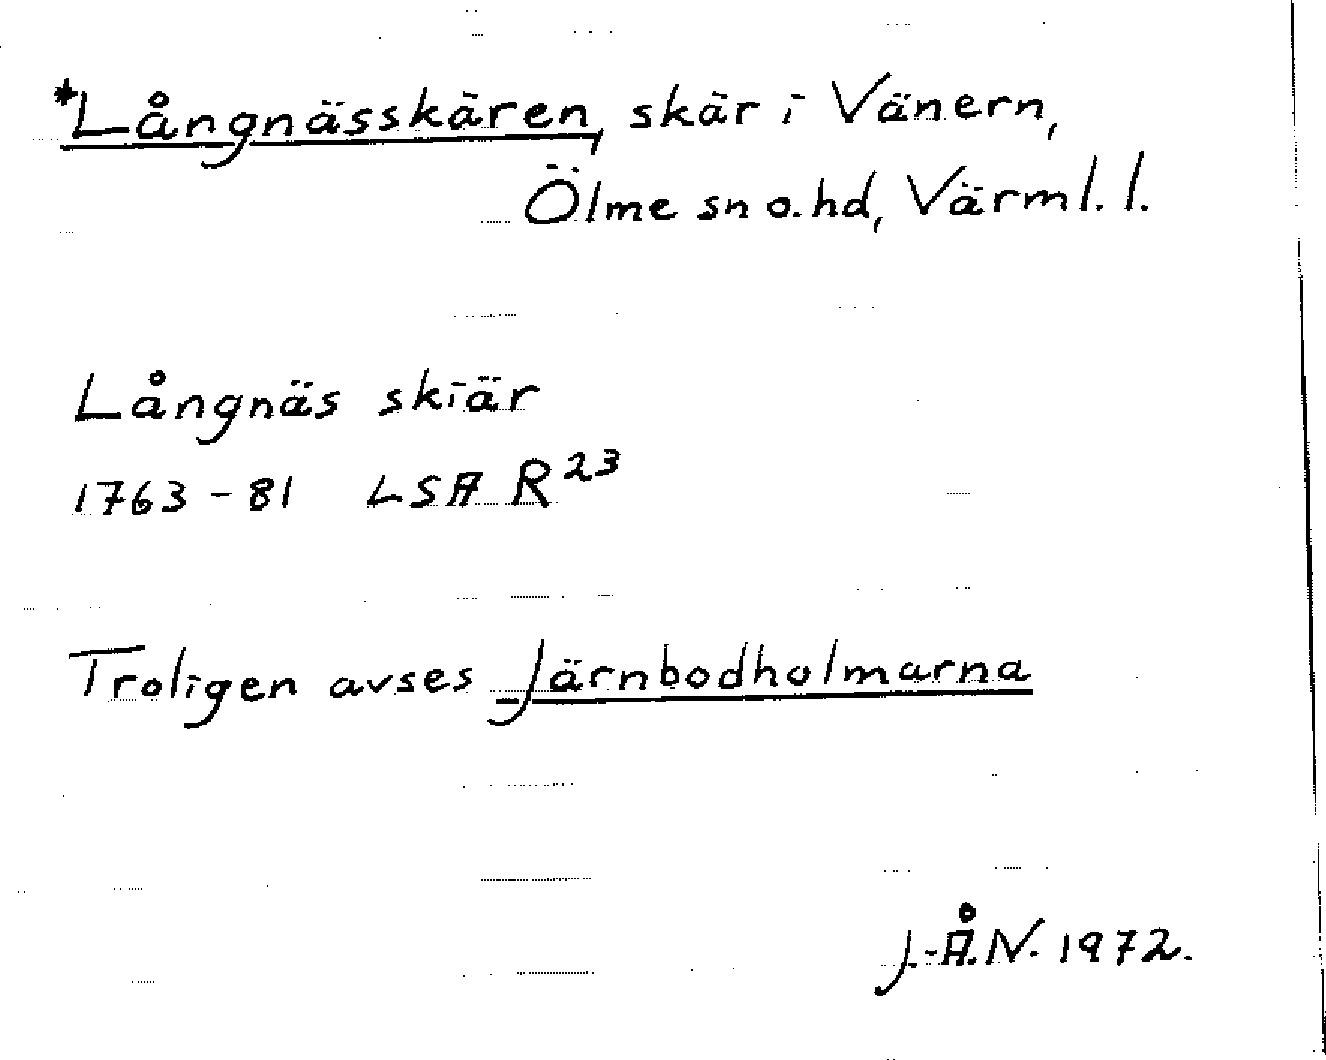 *Långnässkären, skär i Vänern,
Ölme sn o. hd, Värml. l.
Långnäs skiär
1763-81 LSA R23
Troligen avses Järnbodholmarna
J.-Å.N. 1972.